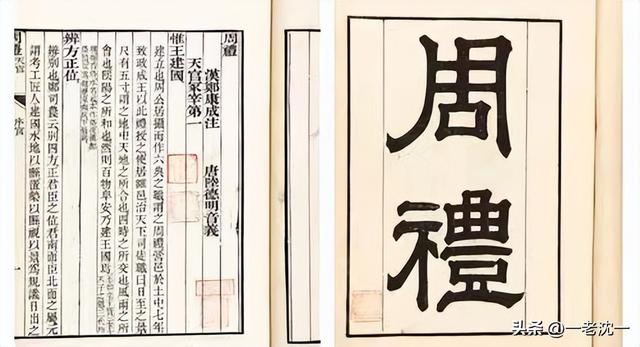 周禮
周禮
漢鄭康成注　唐陸德明音義
天官冢宰第一
惟王建國
建立也周公居攝而作六典之職謂之周禮營邑於土中七年
致政成王以此禮授之使居雒邑治天下司徒職曰日至之景
尺有五寸謂之地中天地之所合也四時之所交也風雨之所
會也陰陽之所和也然則百物阜安乃建王國焉
辨方正位
辨別也鄭司農云別四方正君臣之位君南面臣北面之屬玄
謂考工匠人建國水地以縣置槷以縣眡以景爲規識日出之
周禮 天官 序官 一
头条 @一老沈一